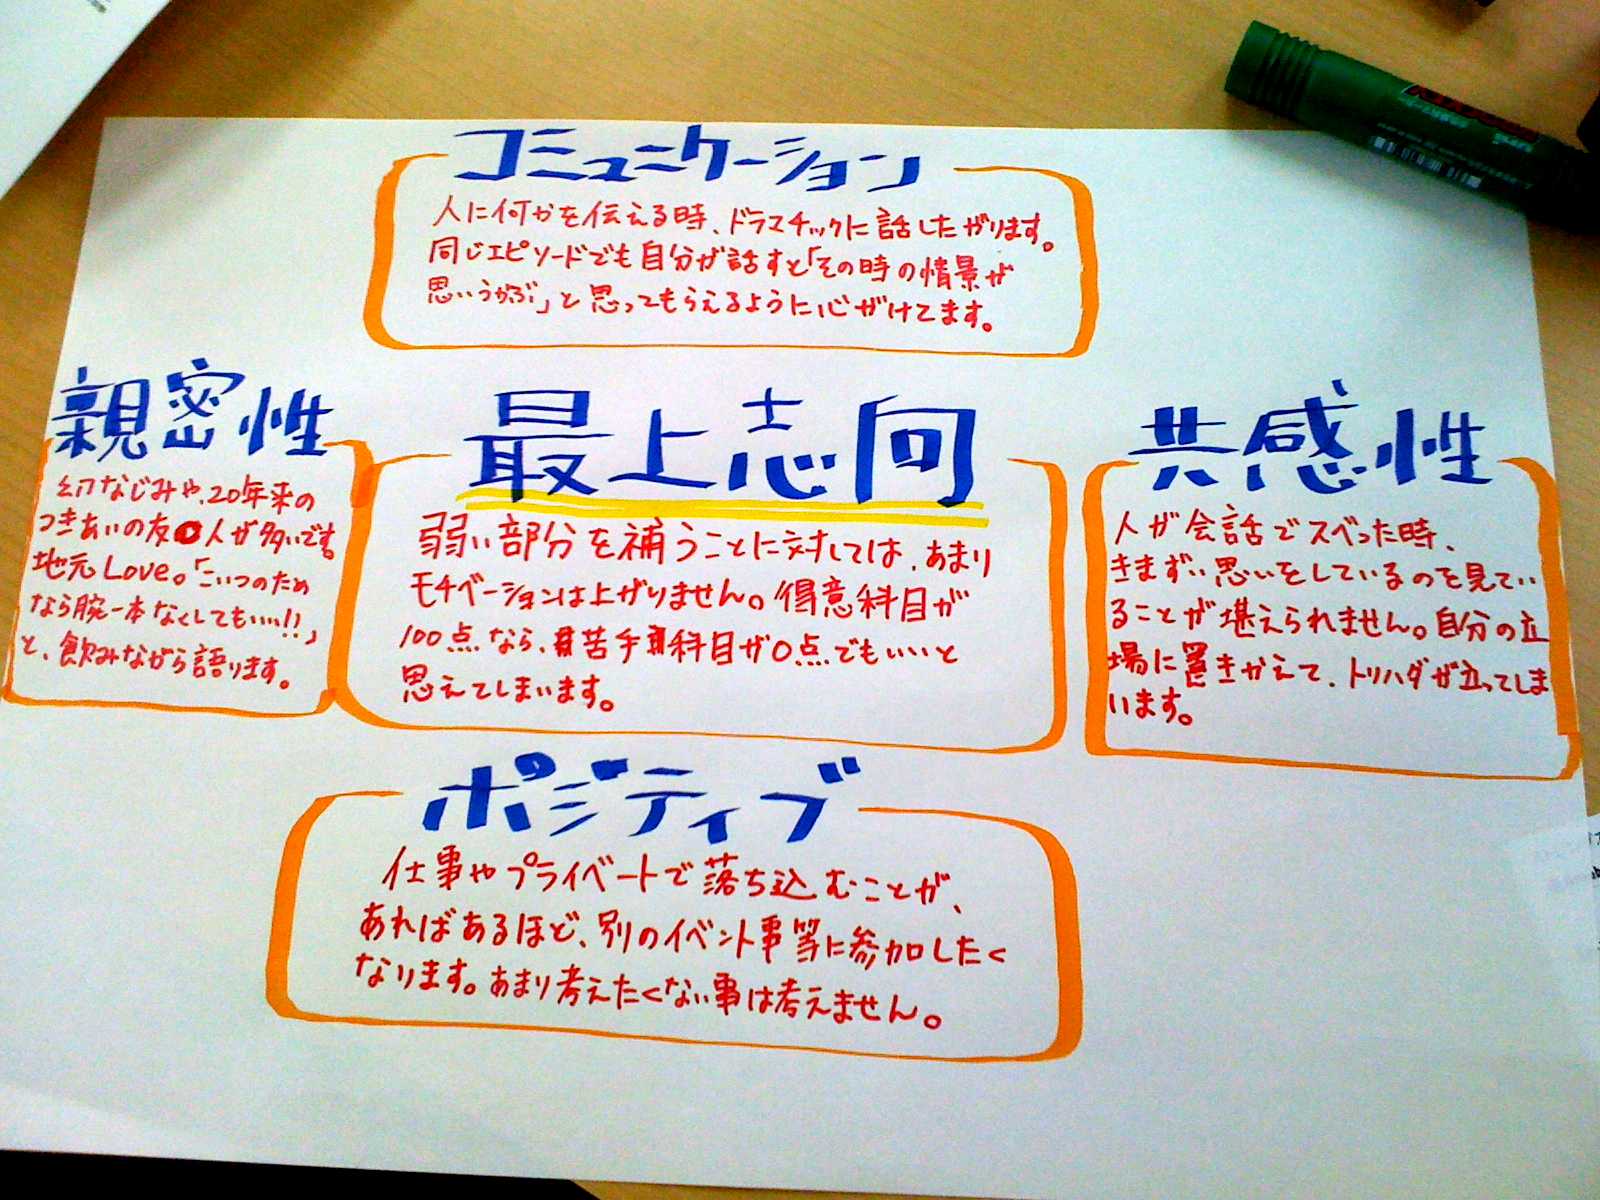 コミュニケーション
人に何かを伝える時、ドラマチックに話したがります。
同じエピソードでも自分が話すと「その時の情景が
思いうかぶ」と思ってもらえるように心がけてます。
親密性
幻なじみや、20年来の
つきあいの友人が多いです。
地元Love。「こいつのため
なら腕一本なくしてもいい!!」
と、飲みながら語ります。
最上志向
弱い部分を補うことに対しては、あまり
モチベーションは上がりません。得意科目が
100点なら、苦手科目が0点でもいいと
思えてしまいます。
共感性
人が会話でスベった時、
きまずい思いをしているのを見てい
ることが堪えられません。自分の立
場に置きかえて、トリハダが立ってしま
います。
ポジティブ
仕事やプライベートで落ち込むことが、
あればあるほど、別のイベント事等に参加したく
なります。あまり考えたくない事は考えません。